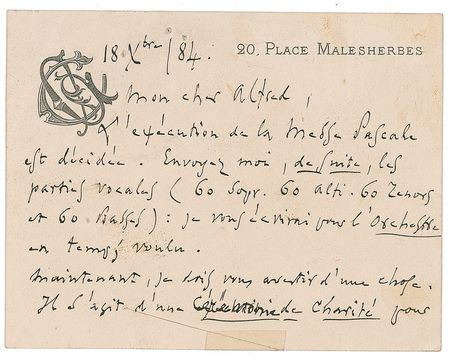 18 Xbre / 84.
20, PLACE MALESHERBES
Mon cher Alfred,
L'exécution de la Messe Pascale
est décidée. Envoyez moi, de suite, les
parties vocales (60 Sopr. 60 Alti. 60 Tenors
et 60 Basses) : je vous écrirai pour l'Orchestre
en temps voulu.
Maintenant, je dois vous avertir d'une chose.
Il s'agit d'une Cérémonie de Charité pour